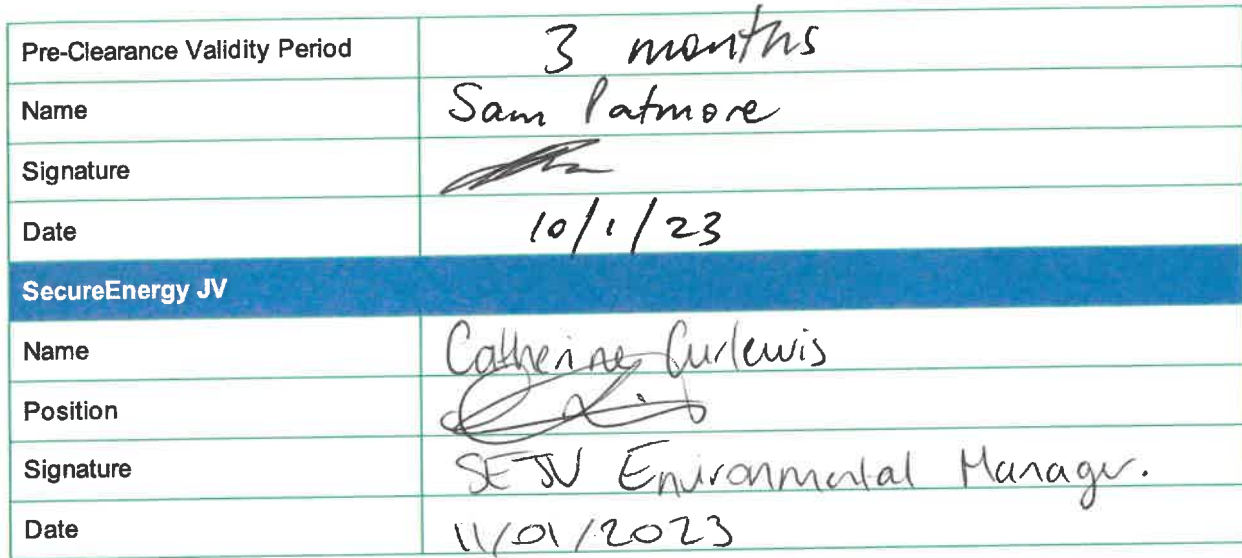 Pre-Clearance Validity Period 3 months
Name Sam Patmore
Signature
Date 10/1/23
SecureEnergy JV
Name Catherine Curlewis
Position
Signature SEJV Environmental Manager.
Date 11/01/2023